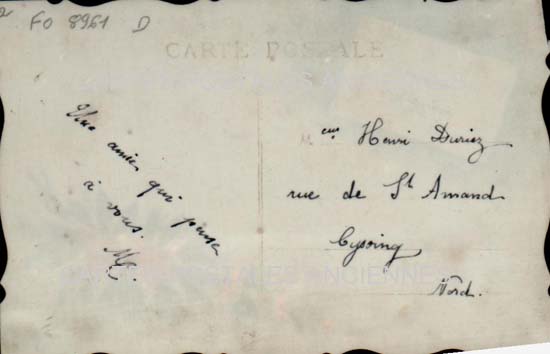 FO 8961 D
CARTE POSTALE
Une amie qui pense
à vous.
M
Henri Duriez
rue de St Amand
Cysoing
Nord.
CARTES POSTALES ANCIENNES